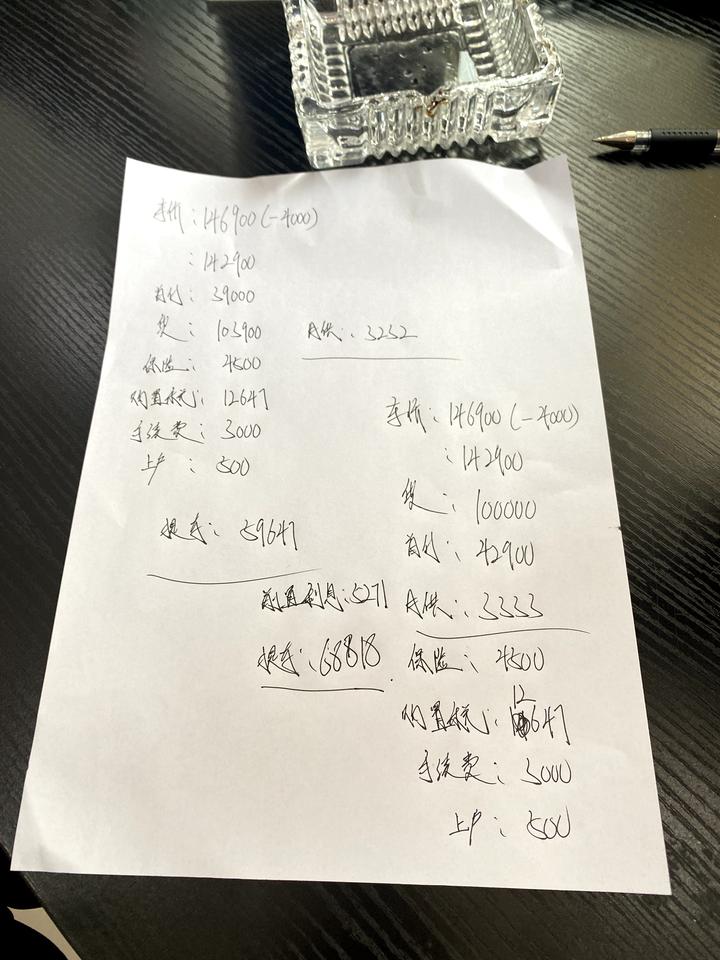 车价：146900(-4000)
：142900
首付：39000
贷：103900
月供：3232
保险：4500
购置税：12647
手续费：3000
上户：500
提车：59647
车价：146900(-4000)
：142900
贷：100000
首付：42900
月供：3333
保险：4500
购置税：12647
手续费：3000
上户：500
前置利息：5271
提车：68818